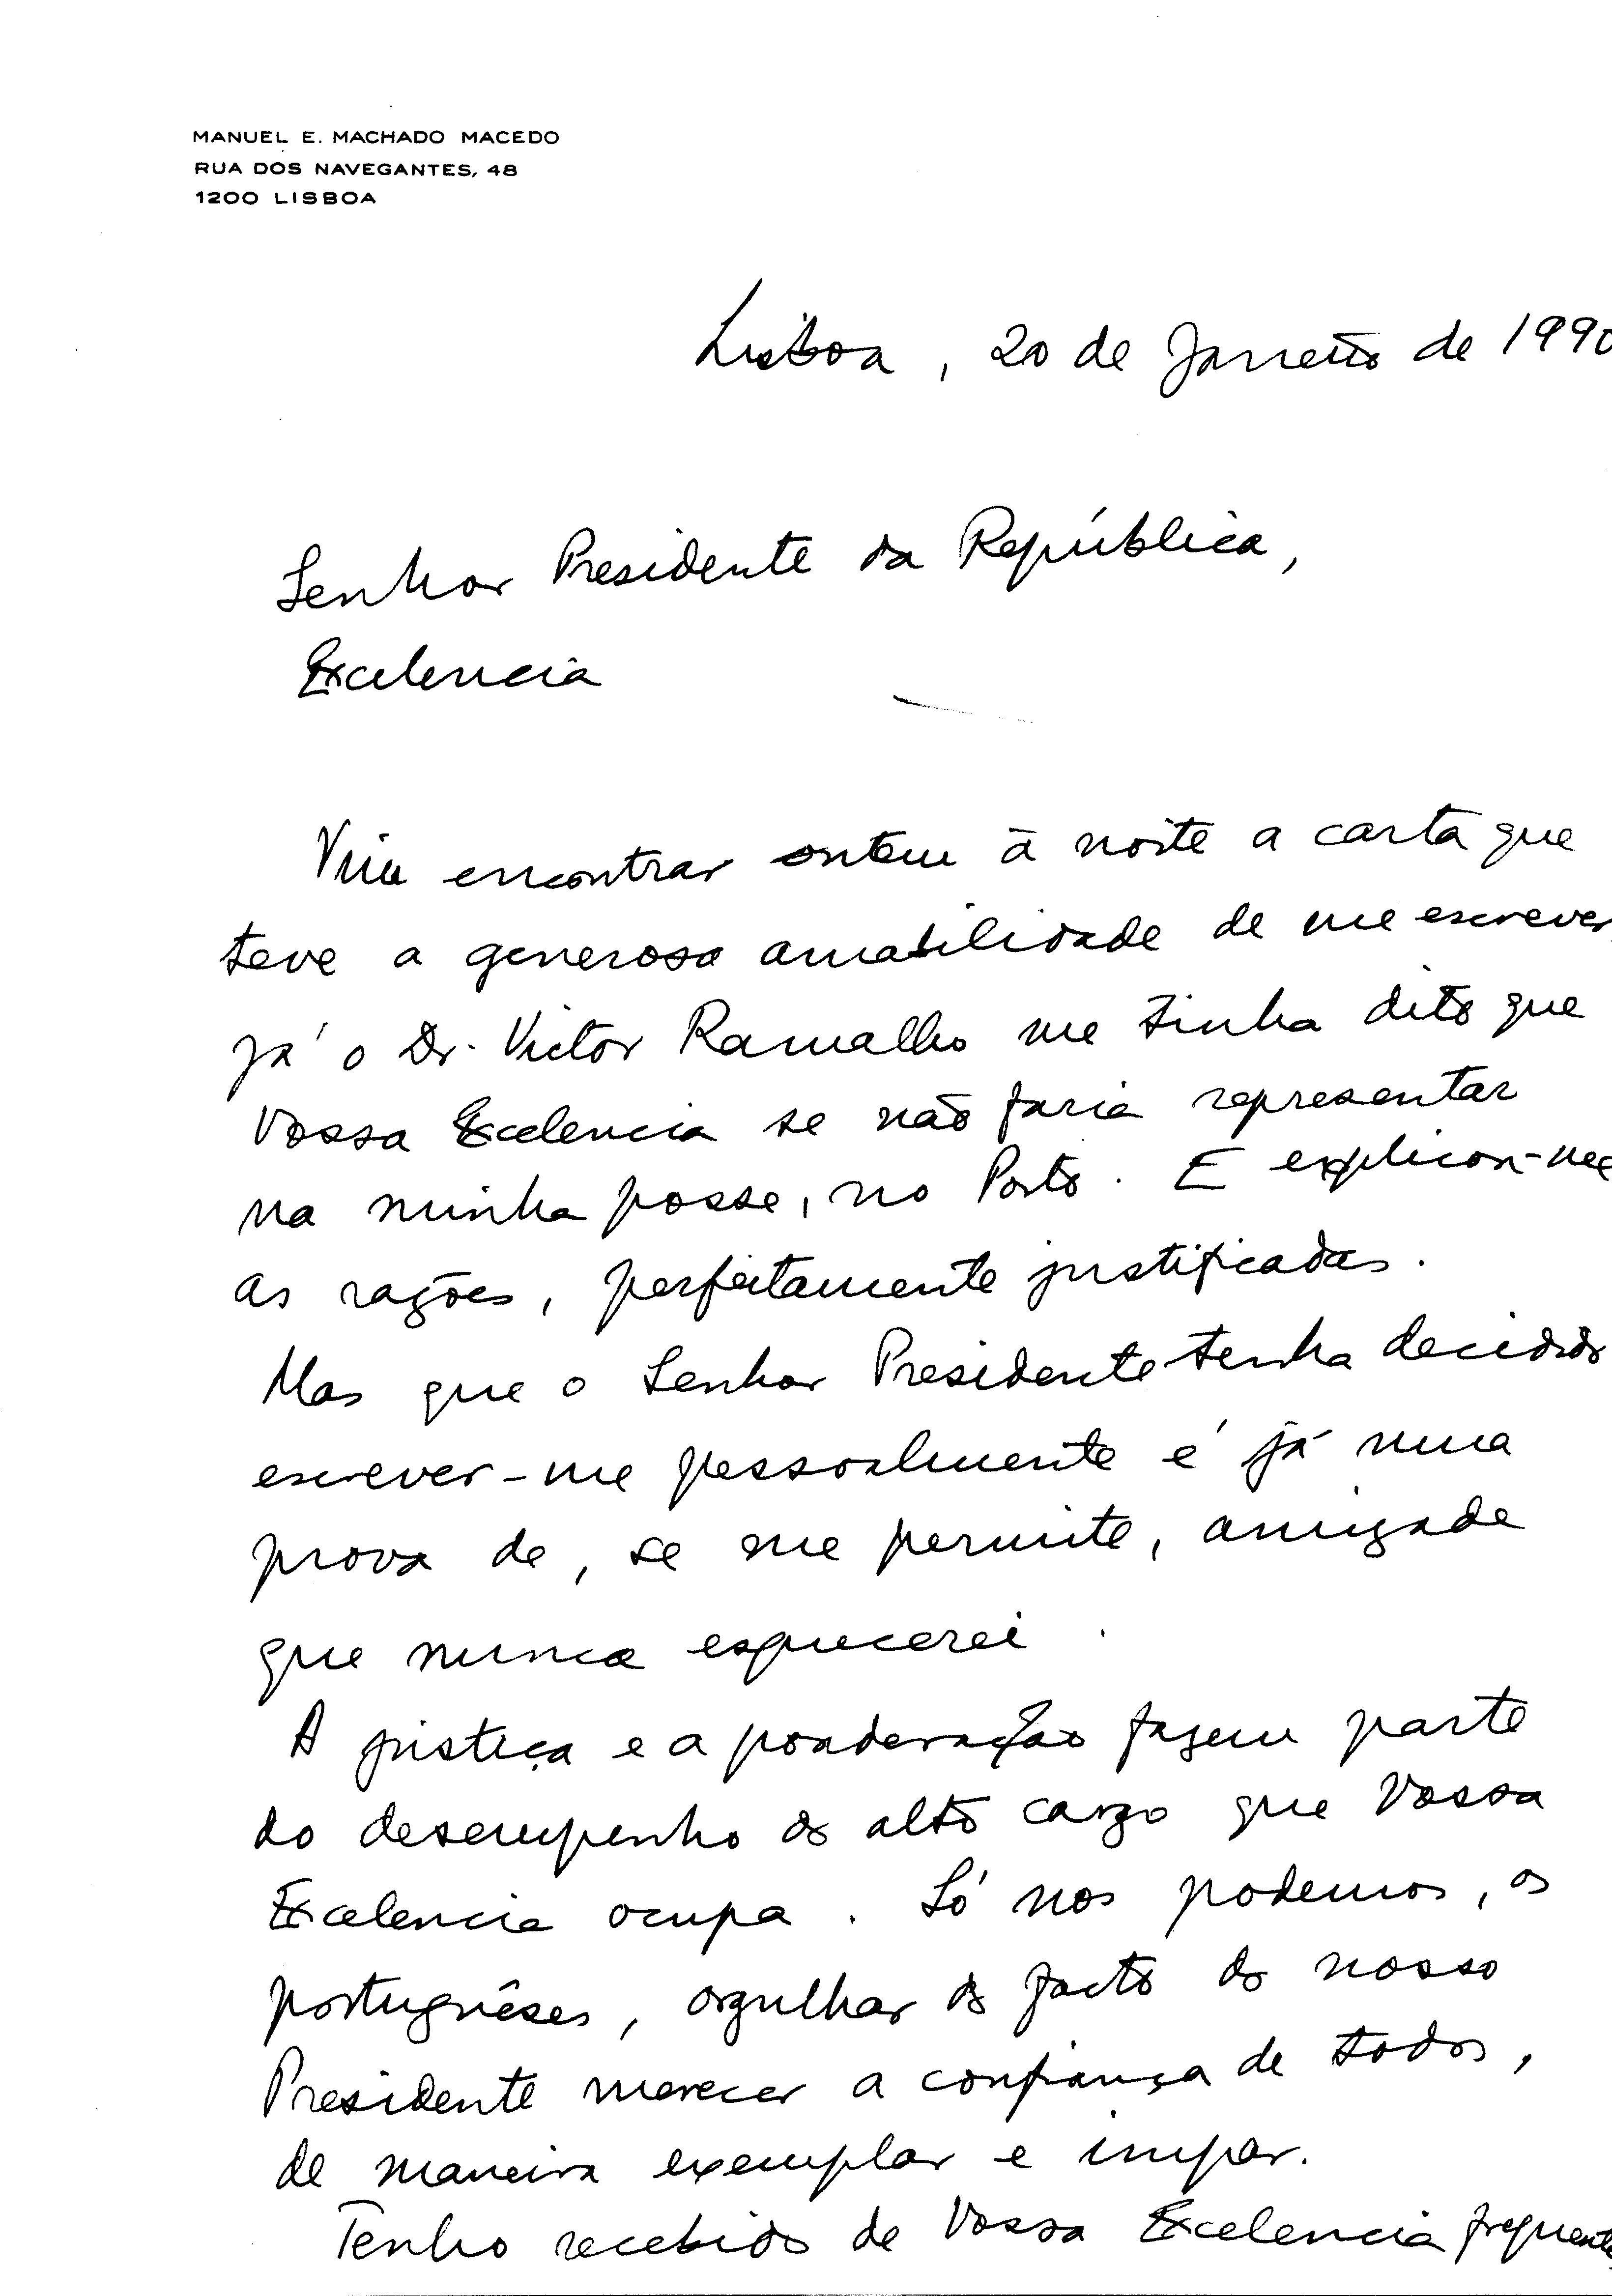 MANUEL E. MACHADO MACEDO
RUA DOS NAVEGANTES, 48
1200 LISBOA
Lisboa, 20 de Janeiro de 1990
Senhor Presidente da República,
Excelencia
Vim encontrar ontem à noite a carta que
teve a generosa amabilidade de me escrever
já o Dr. Victor Ramalho me tinha dito que
Vossa Excelencia se não faria representar
na minha posse, no Porto. E explicou-me
as razões, perfeitamente justificadas.
Mas que o Senhor Presidente tenha decidido
escrever-me pessoalmente é já uma
prova de, se me permite, amizade
que nunca esquecerei.
A justiça e a ponderação fazem parte
do desempenho do alto cargo que Vossa
Excelencia ocupa. Só nos podemos, os
portuguêses, orgulhar do facto do nosso
Presidente merecer a confiança de todos,
de maneira exemplar e impar.
Tenho recebido de Vossa Excelencia frequente